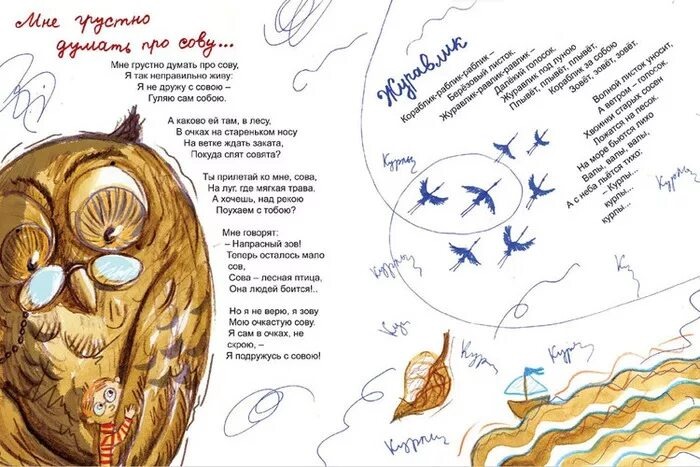 Мне грустно
думать про сову...
Мне грустно думать про сову,
Я так неправильно живу:
Я не дружу с совою –
Гуляю сам собою.
А каково ей там, в лесу,
В очках на стареньком носу
На ветке ждать заката,
Покуда спят совята?
Ты прилетай ко мне, сова,
На луг, где мягкая трава.
А хочешь, над рекою
Поухаем с тобою?
Мне говорят:
– Напрасный зов!
Теперь осталось мало
сов,
Сова – лесная птица,
Она людей боится!..
Но я не верю, я зову
Мою очкастую сову.
Я сам в очках, не
скрою, –
Я подружусь с совою!
Журавлик
Кораблик-раблик-раблик –
Берёзовый листок.
Журавлик-равлик-равлик –
Далёкий голосок.
Журавлик под луною
Плывёт, плывёт, плывёт,
Кораблик за собою
Зовёт, зовёт, зовёт.
Волной листок уносит,
А ветром – голосок.
Хвоинки старых сосен
Ложатся на песок.
На море бьются лихо
Валы, валы, валы,
А с неба льётся тихо:
– Курлы...
курлы...
курлы...
Курлы
Курлы
Курлы
Ку
Кур
Курлы
Курлы
Курлы